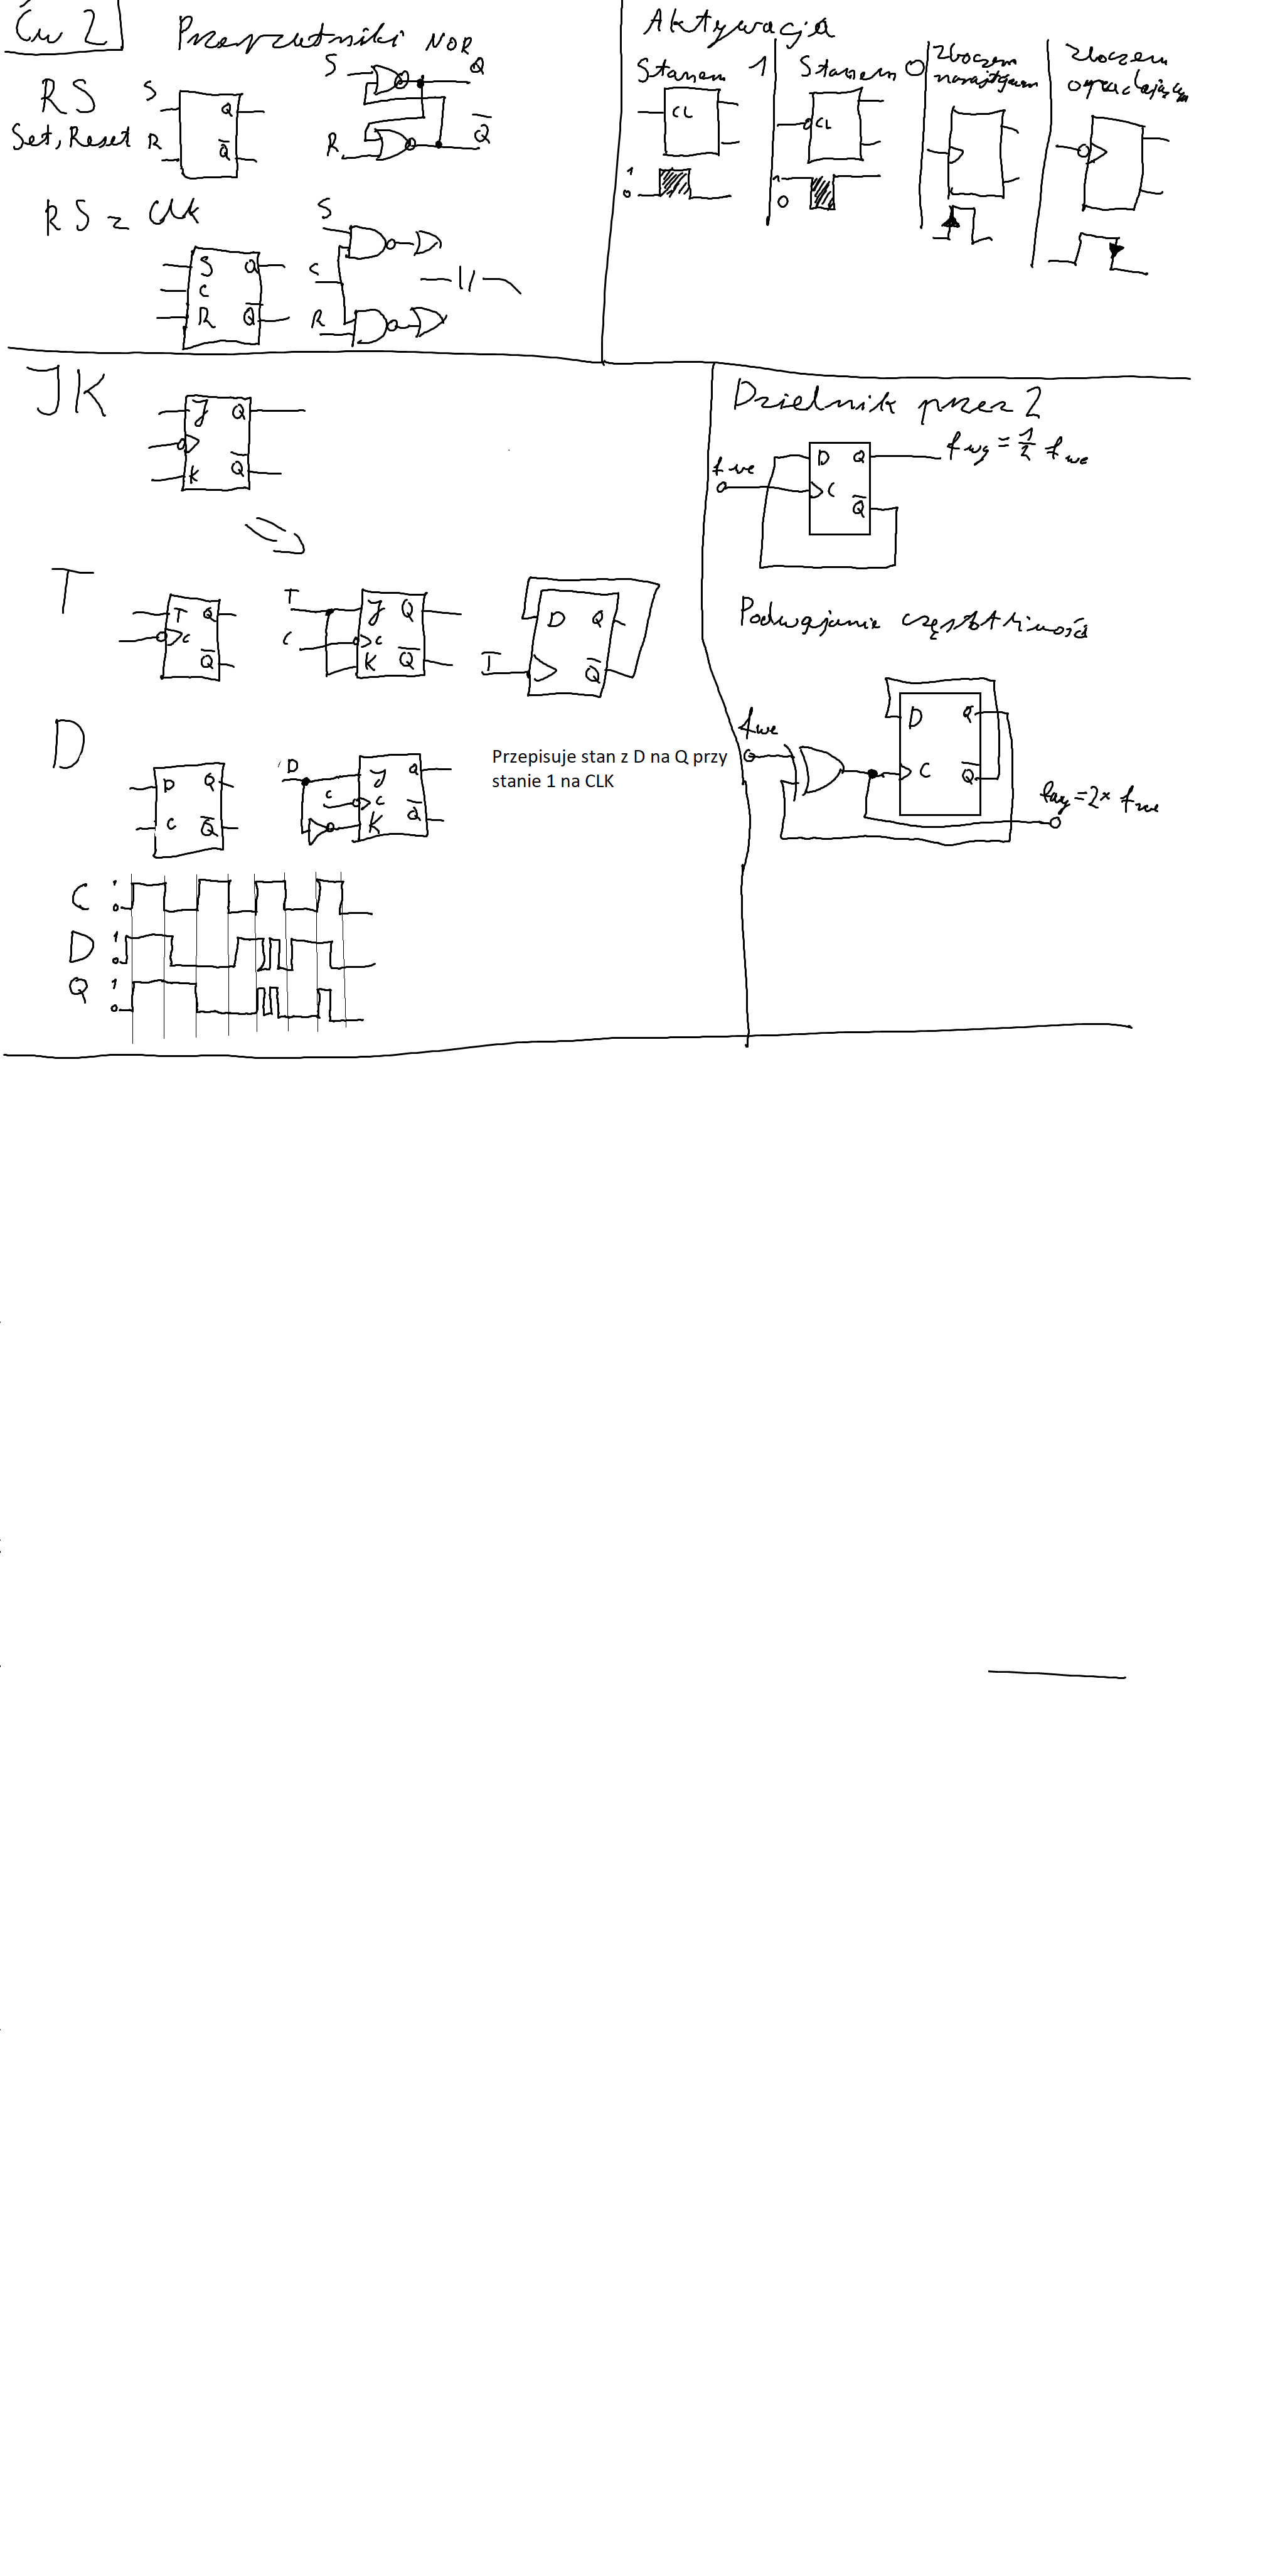 Ćw 2
Przerzutniki NOR
RS
Set, Reset
S
R
Q
Q̅
S
R
Q
Q̅
RS z Clk
S Q
C
R Q̅
S
C
R
Aktywacja
Stanem 1
CL
1
0
Stanem 0
CL
1
0
zboczem
narastającym
zboczem
opadającym
JK
J Q
K Q̅
T
T Q
C
Q̅
T
C
J Q
C
K Q̅
D Q
T
Q̅
D
D Q
C Q̅
D
C
J Q
C
K Q̅
Przepisuje stan z D na Q przy
stanie 1 na CLK
C 1
0
D 1
0
Q 1
0
Dzielnik przez 2
f we
D Q
C
Q̅
f wy = 1/2 f we
Podwajanie częstotliwości
f we
D Q
C Q̅
f wy = 2 × f we